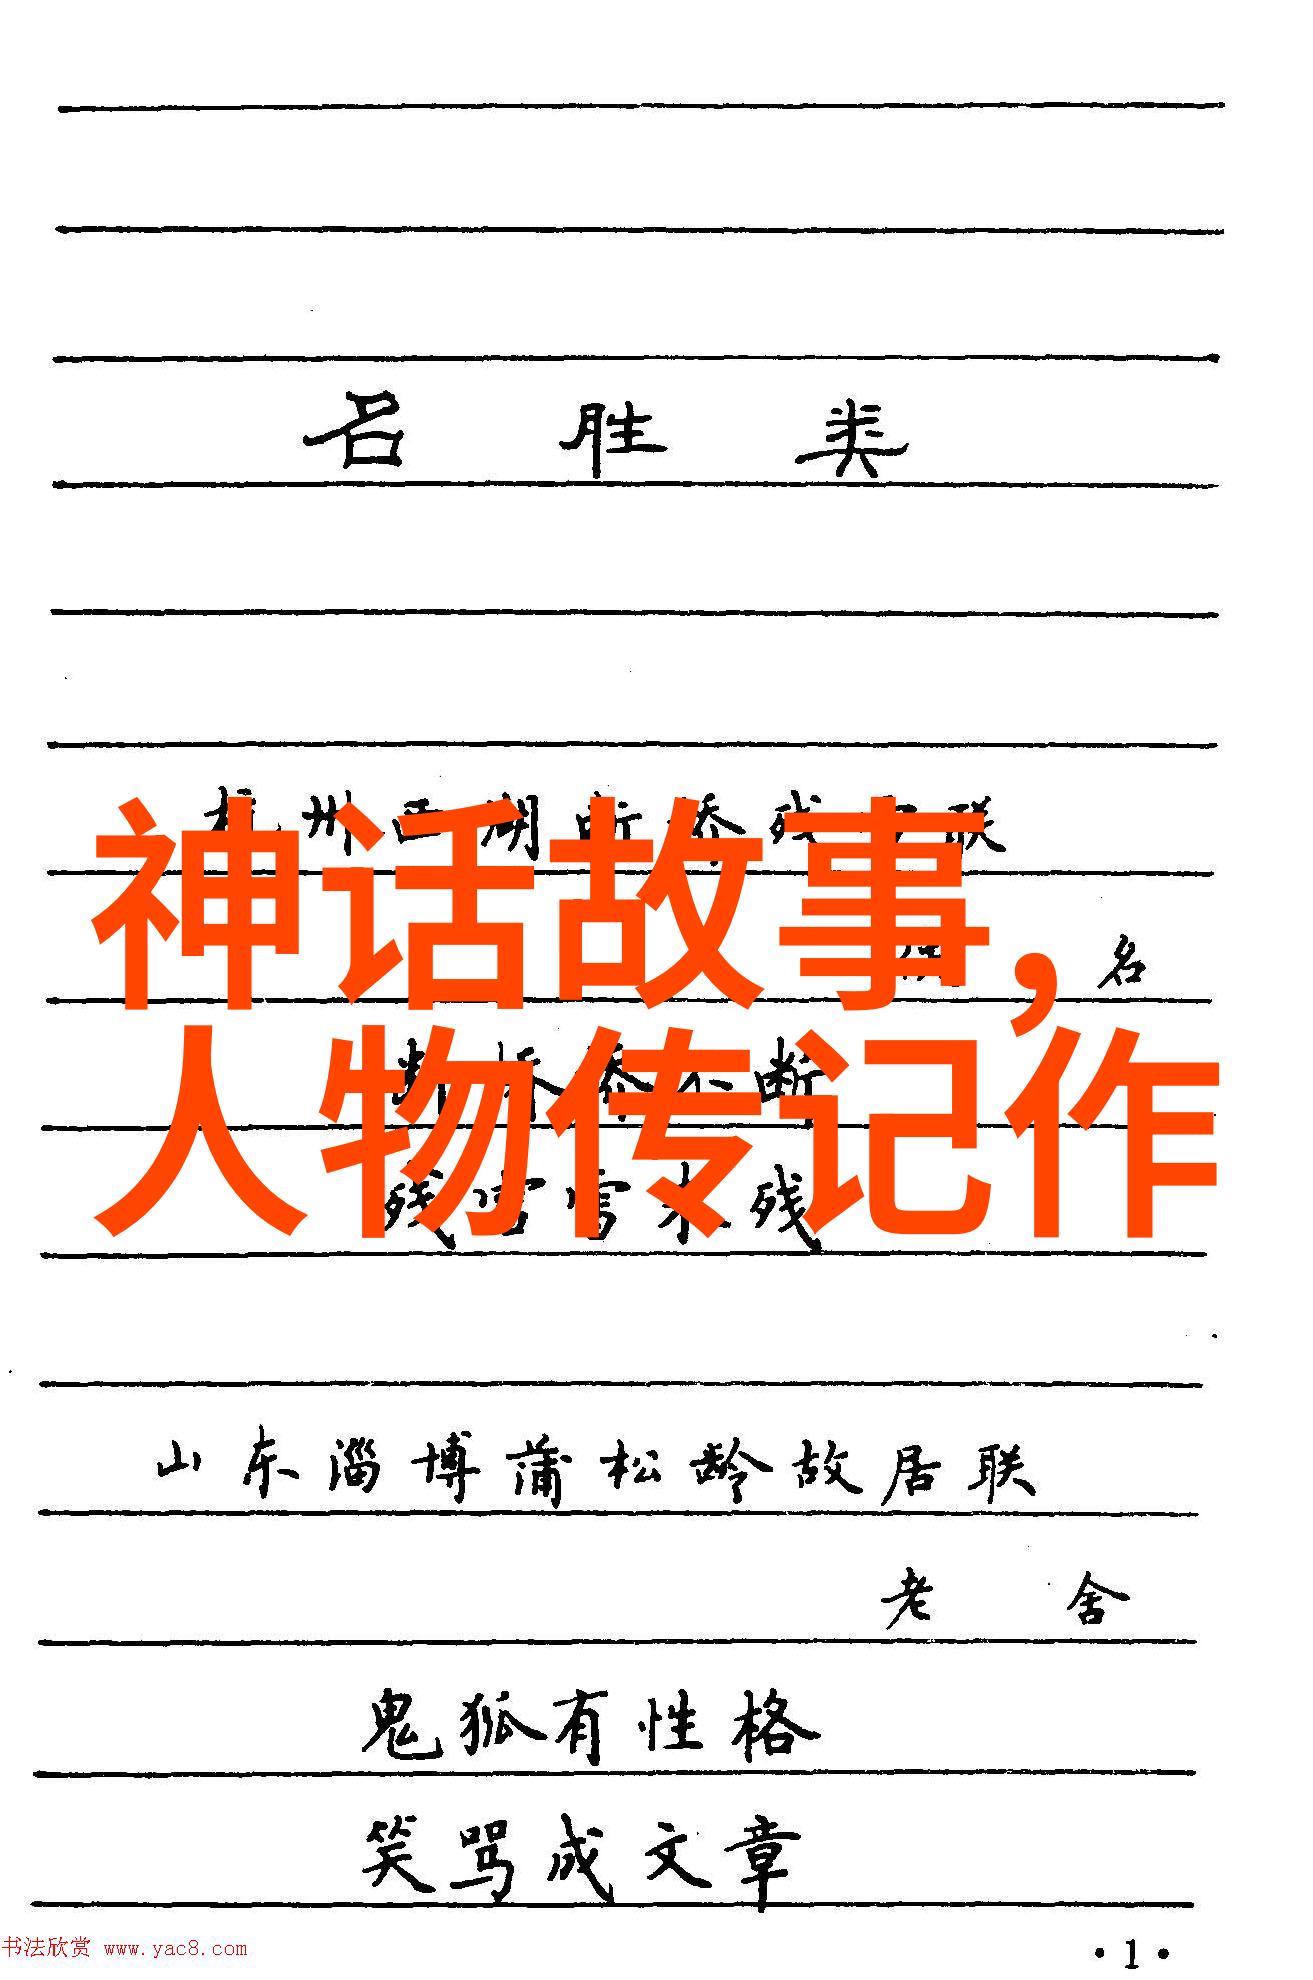 名胜类
杭州西湖断桥残 联
神话故事，
名
人物传记作
断桥桥不断
残 未残
山东淄博蒲松龄故居联
老舍
鬼狐有性格
笑骂成文章
书法欣赏 www.yac8.com
·1·